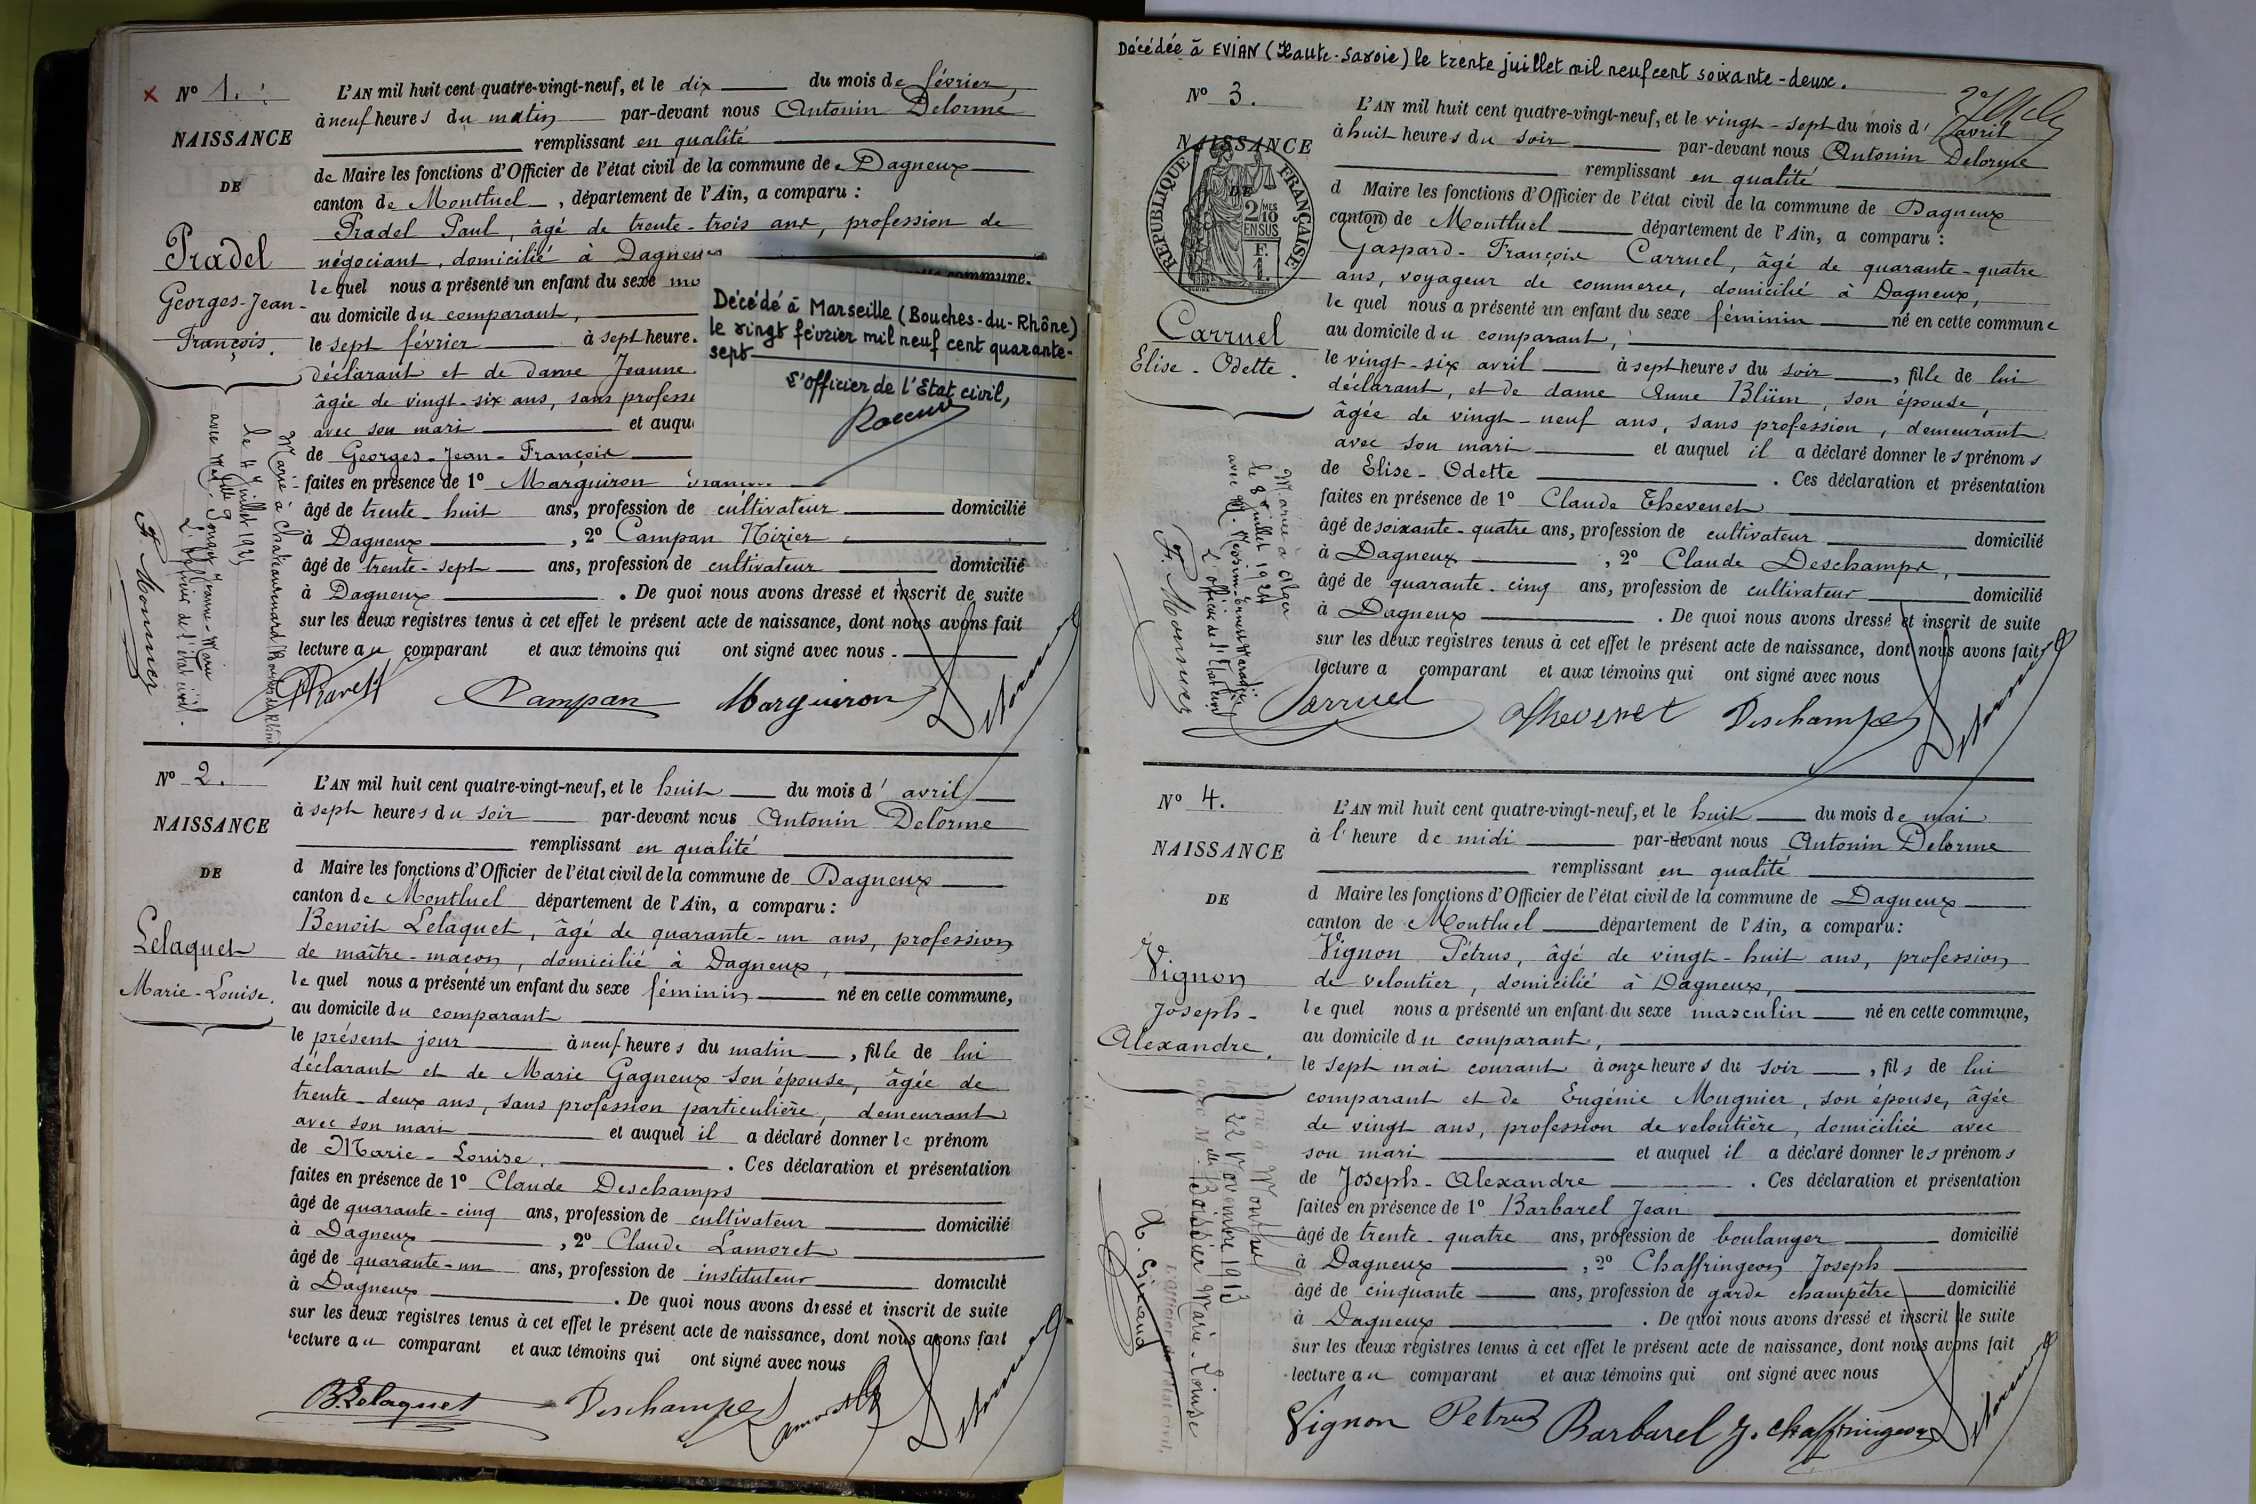 N° 1.
NAISSANCE
DE
Pradel
Georges-Jean-
François.
L'AN mil huit cent quatre-vingt-neuf, et le dix du mois de février,
à neuf heures du matin par-devant nous Antonin Delorme
remplissant en qualité
de Maire les fonctions d'Officier de l'état civil de la commune de Dagneux
canton de Montluel, département de l'Ain, a comparu :
Pradel Paul, âgé de trente-trois ans, profession de
négociant, domicilié à Dagneux
lequel nous a présenté un enfant du sexe commune.
au domicile du comparant,
le sept février à sept heure
déclarant et de dame Jeanne
âgée de vingt-six ans, sans
avec son mari et
de Georges-Jean-François
faites en présence de 1° Marguiron
âgé de trente-huit ans, profession de cultivateur domicilié
à Dagneux, 2° Campan Nizier
âgé de trente-sept ans, profession de cultivateur domicilié
à Dagneux. De quoi nous avons dressé et inscrit de suite
sur les deux registres tenus à cet effet le présent acte de naissance, dont nous avons fait
lecture au comparant et aux témoins qui ont signé avec nous.
Campan Marguiron Delorme
Décédé à Marseille (Bouches-du-Rhône)
le vingt février mil neuf cent quarante-
sept
L'officier de l'Etat civil,
Marié à Chateaurenard
le 4 juillet 1925
avec Jeanne-Marie
L'officier de l'état civil.
F. Monnier
N° 2.
NAISSANCE
DE
Lelaquet
Marie-Louise.
L'AN mil huit cent quatre-vingt-neuf, et le huit du mois d'avril
à sept heures du soir par-devant nous Antonin Delorme
remplissant en qualité
d Maire les fonctions d'Officier de l'état civil de la commune de Dagneux
canton de Montluel département de l'Ain, a comparu :
Benoit Lelaquet, âgé de quarante-un ans, profession
de maître-maçon, domicilié à Dagneux,
lequel nous a présenté un enfant du sexe féminin né en cette commune,
au domicile du comparant
le présent jour à neuf heures du matin, fille de lui
déclarant et de Marie Gagneux son épouse, âgée de
trente-deux ans, sans profession particulière, demeurant
avec son mari et auquel il a déclaré donner le prénom
de Marie-Louise. Ces déclaration et présentation
faites en présence de 1° Claude Deschamps
âgé de quarante-cinq ans, profession de cultivateur domicilié
à Dagneux, 2° Claude Lamoret
âgé de quarante-un ans, profession de instituteur domicilié
à Dagneux. De quoi nous avons dressé et inscrit de suite
sur les deux registres tenus à cet effet le présent acte de naissance, dont nous avons fait
lecture au comparant et aux témoins qui ont signé avec nous
B. Lelaquet Deschamps Lamoret Delorme
Décédée à EVIAN (Haute-Savoie) le trente juillet mil neuf cent soixante-deux.
N° 3.
NAISSANCE
DE
REPUBLIQUE FRANÇAISE
2/10 MES
EN SUS
F.
1.
Carruel
Elise-Odette.
L'AN mil huit cent quatre-vingt-neuf, et le vingt-sept du mois d'avril
à huit heures du soir par-devant nous Antonin Delorme
remplissant en qualité
d Maire les fonctions d'Officier de l'état civil de la commune de Dagneux
canton de Montluel département de l'Ain, a comparu :
Gaspard-François Carruel, âgé de quarante-quatre
ans, voyageur de commerce, domicilié à Dagneux,
lequel nous a présenté un enfant du sexe féminin né en cette commune
au domicile du comparant,
le vingt-six avril à sept heures du soir, fille de lui
déclarant, et de dame Anne Blüm, son épouse,
âgée de vingt-neuf ans, sans profession, demeurant
avec son mari et auquel il a déclaré donner les prénoms
de Elise-Odette. Ces déclaration et présentation
faites en présence de 1° Claude Thevenet
âgé de soixante-quatre ans, profession de cultivateur domicilié
à Dagneux, 2° Claude Deschamps,
âgé de quarante-cinq ans, profession de cultivateur domicilié
à Dagneux. De quoi nous avons dressé et inscrit de suite
sur les deux registres tenus à cet effet le présent acte de naissance, dont nous avons fait
lecture a comparant et aux témoins qui ont signé avec nous
Carruel Thevenet Deschamps Delorme
Mariée à Alger
le 8 juillet 1924
L'officier de l'Etat civil
F. Monnier
N° 4.
NAISSANCE
DE
Vignon
Joseph-
Alexandre.
L'AN mil huit cent quatre-vingt-neuf, et le huit du mois de mai
à l'heure de midi par-devant nous Antonin Delorme
remplissant en qualité
d Maire les fonctions d'Officier de l'état civil de la commune de Dagneux
canton de Montluel département de l'Ain, a comparu :
Vignon Pétrus, âgé de vingt-huit ans, profession
de veloutier, domicilié à Dagneux,
lequel nous a présenté un enfant du sexe masculin né en cette commune,
au domicile du comparant,
le sept mai courant à onze heures du soir, fils de lui
comparant et de Eugénie Mugnier, son épouse, âgée
de vingt ans, profession de veloutière, domiciliée avec
son mari et auquel il a déclaré donner les prénoms
de Joseph-Alexandre. Ces déclaration et présentation
faites en présence de 1° Barbarel Jean
âgé de trente-quatre ans, profession de boulanger domicilié
à Dagneux, 2° Chaffringeon Joseph
âgé de cinquante ans, profession de garde champêtre domicilié
à Dagneux. De quoi nous avons dressé et inscrit de suite
sur les deux registres tenus à cet effet le présent acte de naissance, dont nous avons fait
lecture au comparant et aux témoins qui ont signé avec nous
Vignon Petrus Barbarel J. Chaffringeon Delorme
Marié à Montluel
le 22 Novembre 1913
avec Marie-Louise
L'officier de l'état civil,